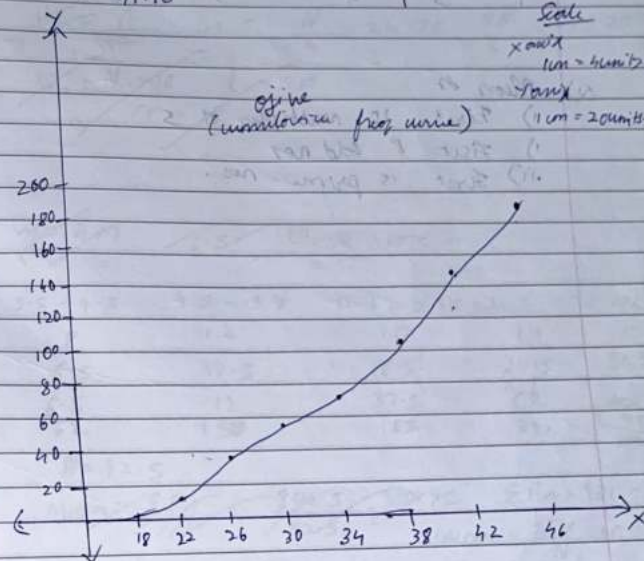 Y
Scale
x axis
1cm = 4units
Y axis
1 cm = 20units
ogive
(cumulative freq curve)
200
180
160
140
120
100
80
60
40
20
18 22 26 30 34 38 42 46 X